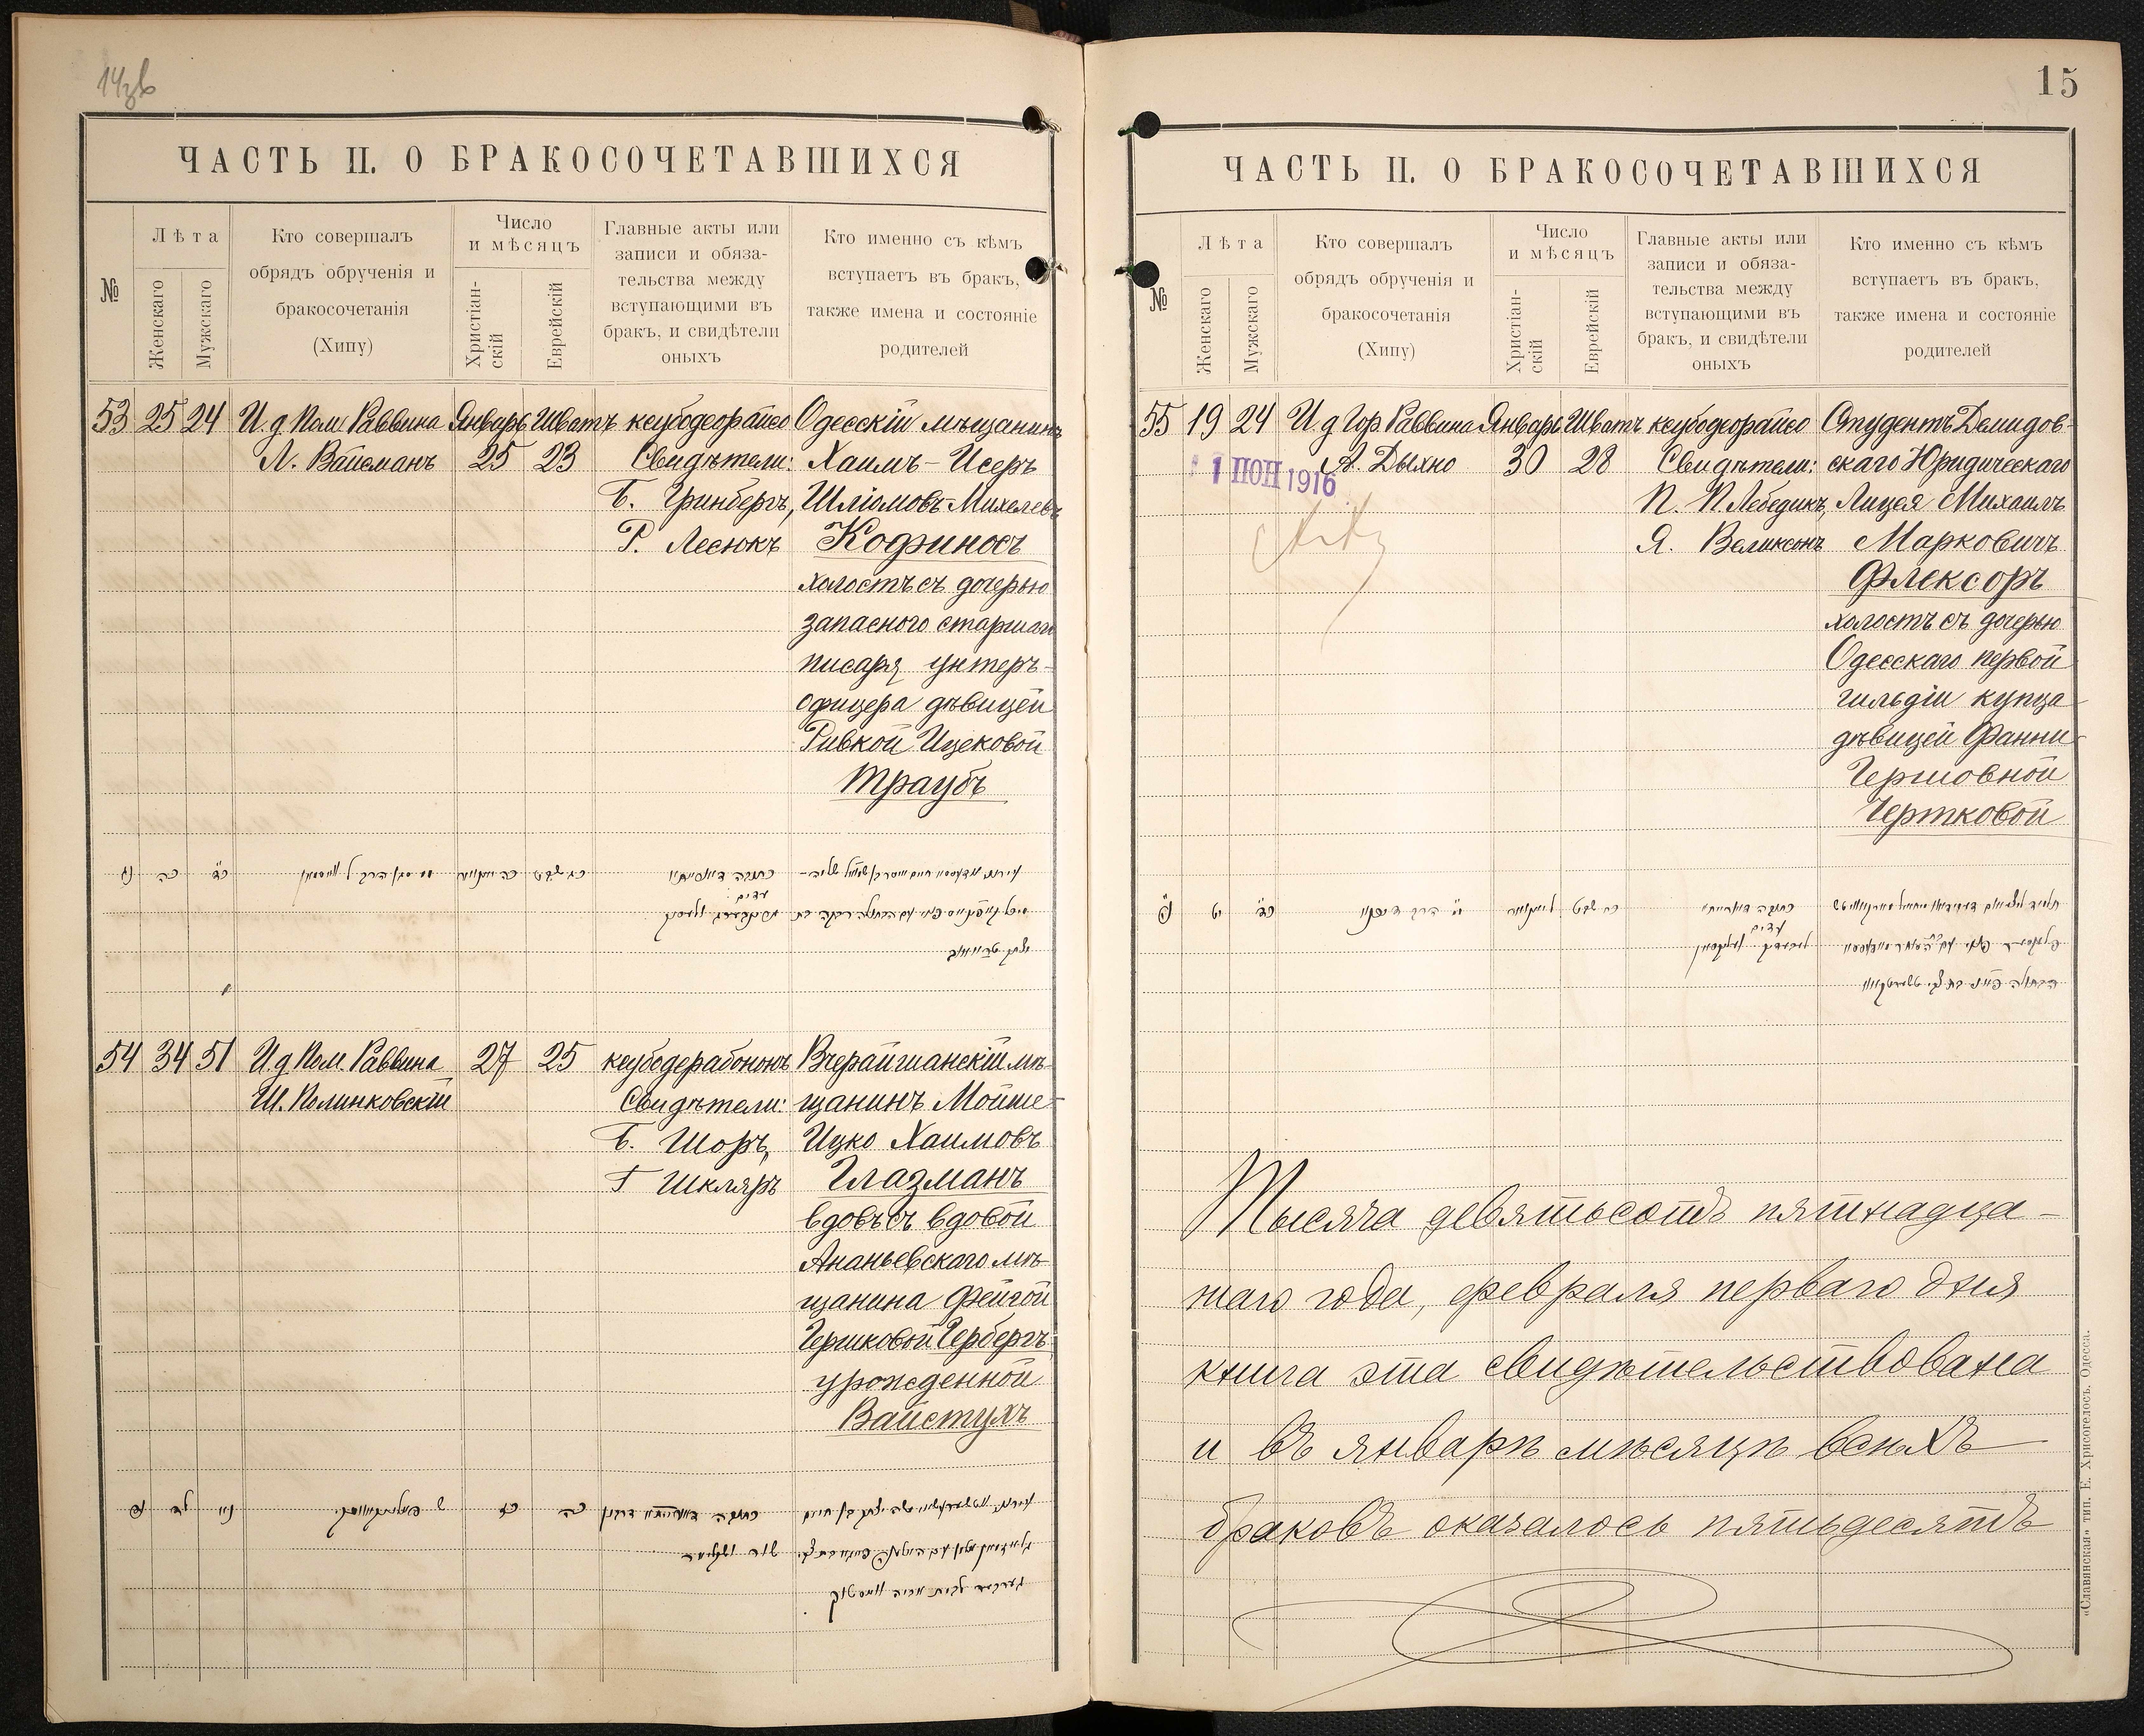 14 зв
ЧАСТЬ II. О БРАКОСОЧЕТАВШИХСЯ
№
Лѣта
Женскаго
Мужскаго
Кто совершалъ
обрядъ обрученія и
бракосочетанія
(Хипу)
Число
и мѣсяцъ
Христіан-
скій
Еврейскій
Главные акты или
записи и обяза-
тельства между
вступающими въ
бракъ, и свидѣтели
оныхъ
Кто именно съ кѣмъ
вступаетъ въ бракъ,
также имена и состояніе
родителей
53 25 24 И. д. Пом. Раввина Январь Шватъ кеубодеорайсо Одесскій мѣщанинъ
Л. Вайсманъ 25 23 Свидѣтели: Хаимъ-Исеръ
Б. Гринбергъ, Шліомовъ-Михелевъ
Р. Лесюкъ Кофиносъ
холостъ съ дочерью
запаснаго старшаго
писаря унтеръ-
офицера дѣвицей
Ривкой Ицековой
Траубъ
54 34 51 И. д. Пом. Раввина 27 25 кеубодерабононъ Вчерайшанскій мѣ-
Ш. Полинковскій Свидѣтели: щанинъ Мойше-
Б. Шоръ, Ицко Хаимовъ
Г Шкляръ Глазманъ
вдовъ съ вдовой
Ананьевскаго мѣ-
щанина Фейгой
Гершковой Гербергъ
урожденной
Вайстухъ
15
ЧАСТЬ II. О БРАКОСОЧЕТАВШИХСЯ
№
Лѣта
Женскаго
Мужскаго
Кто совершалъ
обрядъ обрученія и
бракосочетанія
(Хипу)
Число
и мѣсяцъ
Христіан-
скій
Еврейскій
Главные акты или
записи и обяза-
тельства между
вступающими въ
бракъ, и свидѣтели
оныхъ
Кто именно съ кѣмъ
вступаетъ въ бракъ,
также имена и состояніе
родителей
55 19 24 И. д Гор. Раввина Январь Шватъ кеубодеорайсо Студентъ Демидов-
А. Дыхно 30 28 Свидѣтели: скаго Юридическаго
1 ІЮН 1916
П. П. Лебедикъ, Лицея Михаилъ
Я. Великсонъ Марковичъ
Флексоръ
холостъ съ дочерью
Одесскаго первой
гильдіи купца
дѣвицей Фанни
Гершовной
Чертковой
Тысяча девятьсотъ пятнадца-
таго года, февраля перваго дня
книга эта свидѣтельствована
и въ январѣ мѣсяцѣ всѣхъ
браковъ оказалось пятьдесятъ
«Славянская» тип. Е. Хрисогелосъ. Одесса.